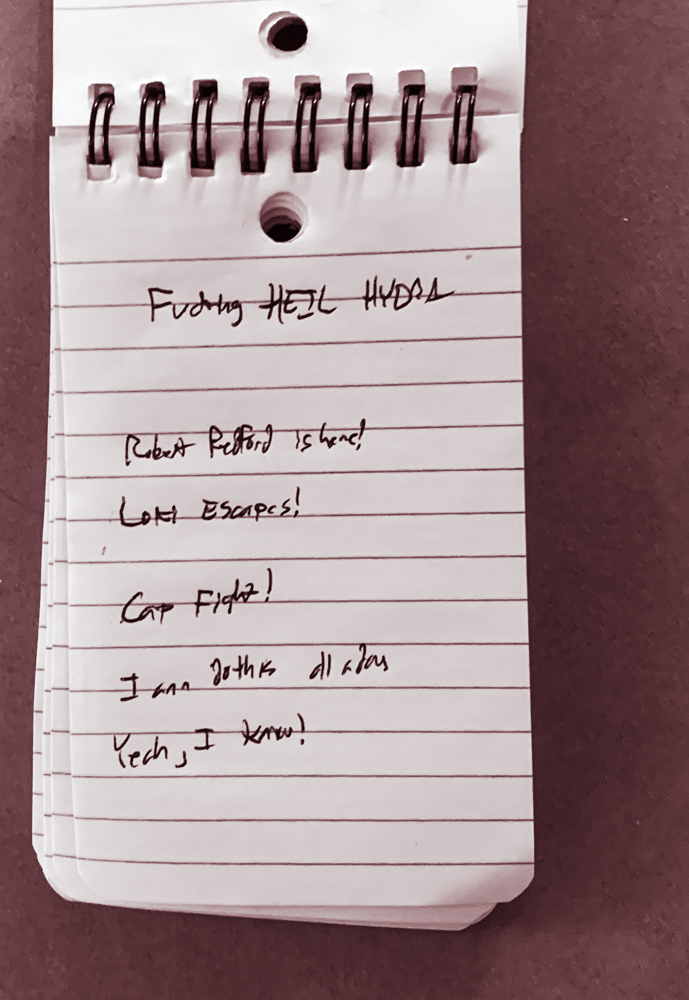 Fucking HEIL HYDRA
Robert Redford is here!
Loki Escapes!
Cap Fight!
I can do this all day
Yeah, I know!